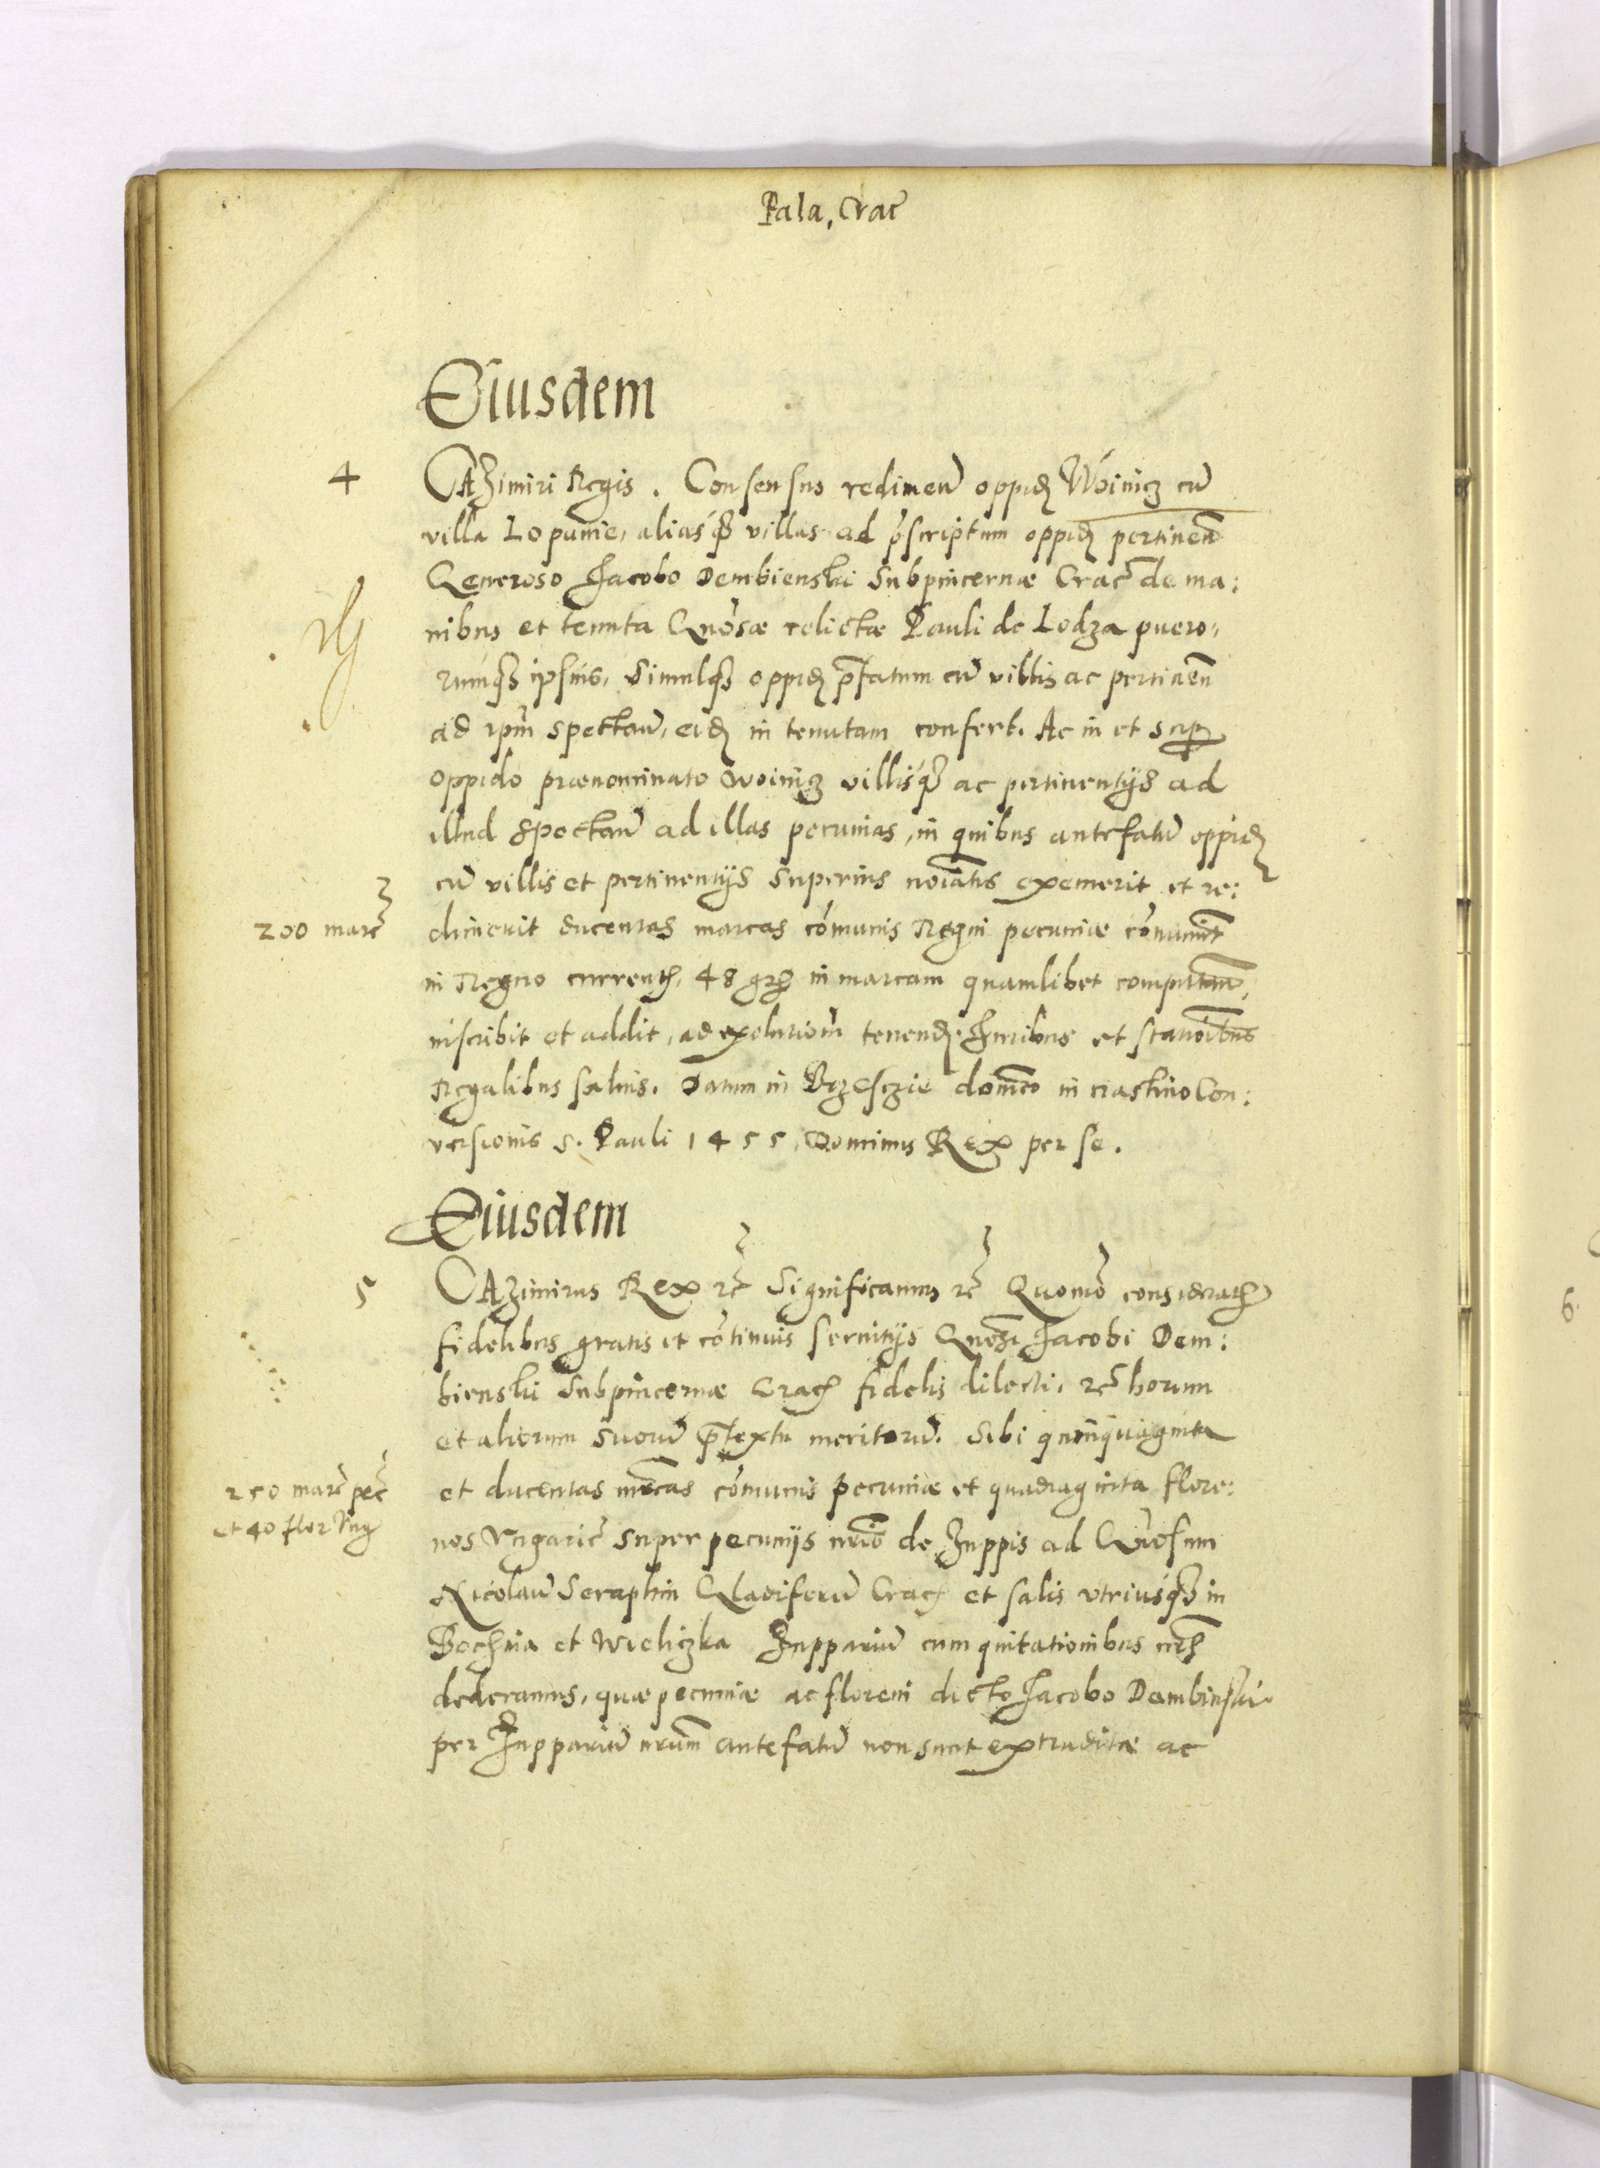 Pala, Crac̄
Eiusdem
4 CAZimiri Regis. Consensus redimen̄ oppid Woinicz cū
villa Lopunie, aliasq̄ villas ad p̄scriptum oppid pertinen̄
Generoso Jacobo Dembienski Subpincernæ Crac̄ de ma:
nibus et tenuta Gn̄osæ relictæ Pauli de Lodza puero,
rumq̄ ipsius, Simulq̄ oppid p̄fatum cū villis ac pertinen̄
ad ipm̄ spectan̄, eid in tenutam confert. Ac in et sup
oppido prænominato Woinicz villisq̄ ac pertinentijs ad
illud spectan̄ ad illas pecunias, in quibus antefatū oppid
cū villis et pertinentijs superius noīatis exemerit et re:
200 marc̄ dimerit ducentas marcas cōmunis Regni pecuniæ cōmunit̄
in Regno current, 48 gr in marcam quamlibet computan̄,
inscribit et addit, ad exolutiōm tenend. Juribus et stationibus
Regalibus saluis. Datum in Brzesczie domīco in crastino Con:
versionis S. Pauli 1455, Dominus Rex per se.
Eiusdem
5 CAZimirus Rex &c̄ Significamus &c̄ Quomō considerat
fidelibus gratis et cōtinuis seruitijs Gn̄osi Jacobi Dem:
bienski Subpincernæ Crac fidelis dilecti, &c̄ horum
et aliorum suorū p̄textu meritorū. Sibi quinquaginta
250 marc̄ pec̄ et ducentas mr̄cas cōmunis pecuniæ et quadraginta flore:
et 40 flor Vng nos Vngaric̄ super pecunijs nr̄is de Zuppis ad Gn̄osum
Nicolaū Seraphin Gladiferū Crac et salis vtriusq̄ in
Bochnia et Wieliczka Zuppariū cum quitationibus nr̄is
dederamus, quæ pecuniæ ac floreni dicto Jacobo Dambinski
per Zuppariū nr̄um antefatū non sunt extraditæ ac
6